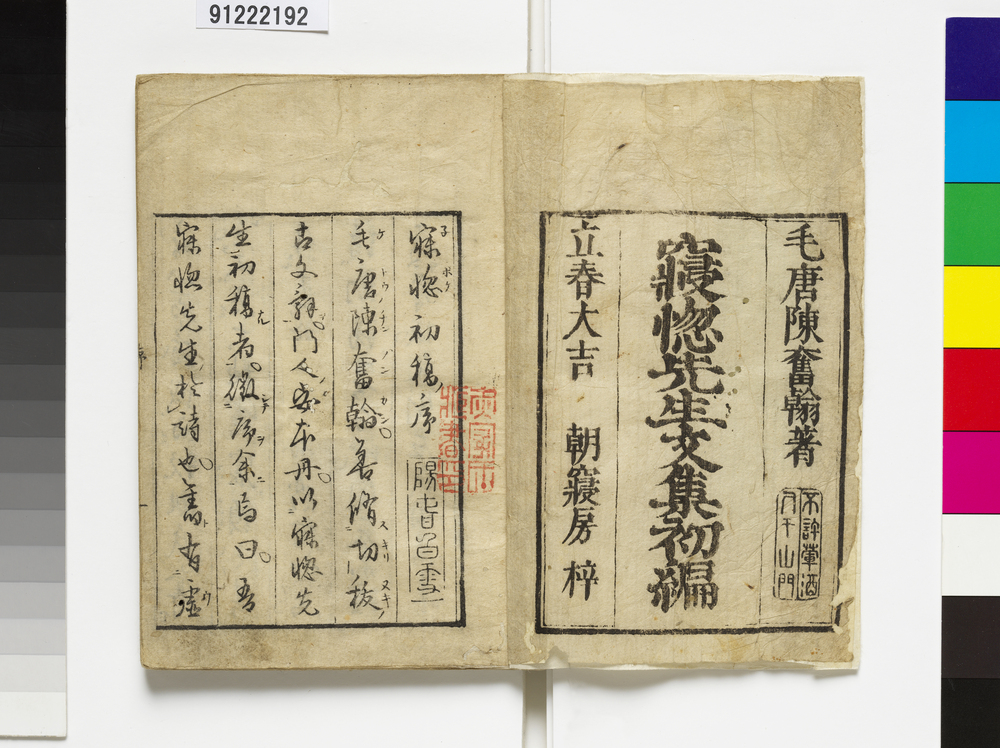 91222192
毛唐陳奮翰著
不許葷酒
入于山門
寢惚先生文集初編
立春大吉 朝寢房 梓
寐惚初稿序
陽春白雪
毛唐陳奮翰善脩切拔
古文辭門人安本丹以寐惚先
生初稿者徴序余焉曰吾
寐惚先生於詩也舊有虛
序